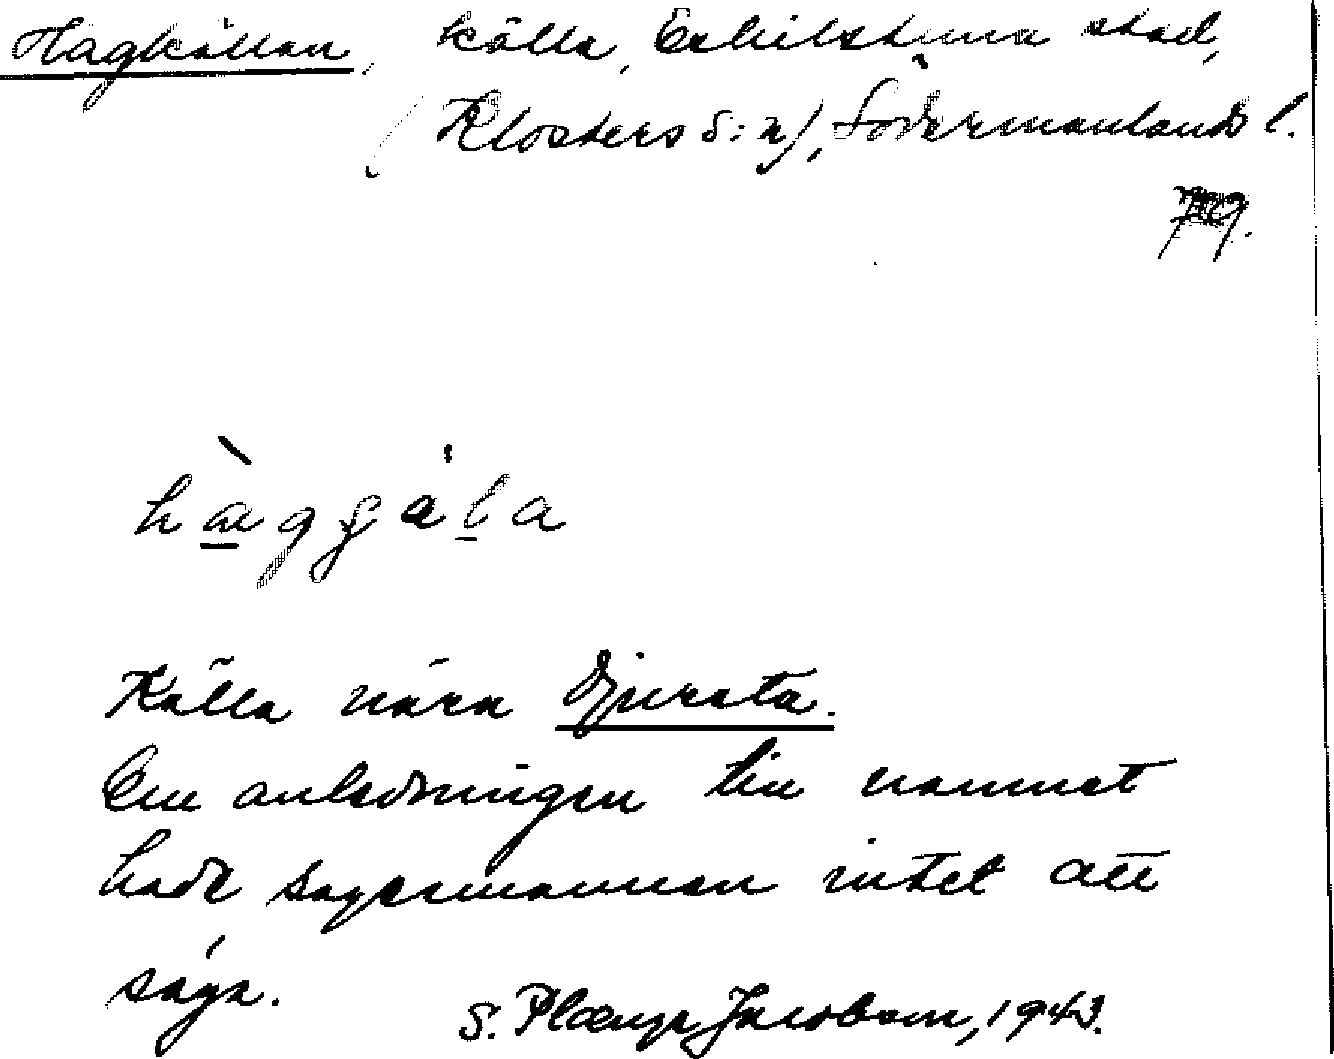 Hagkällan, källa, Eskilstuna stad,
(Klosters s:n), Södermanlands l.
häggala
Källa nära Djursta.
Om anledningen till namnet
hade sagesmannen intet att
säga.
S. Plænge Jacobson, 1943.